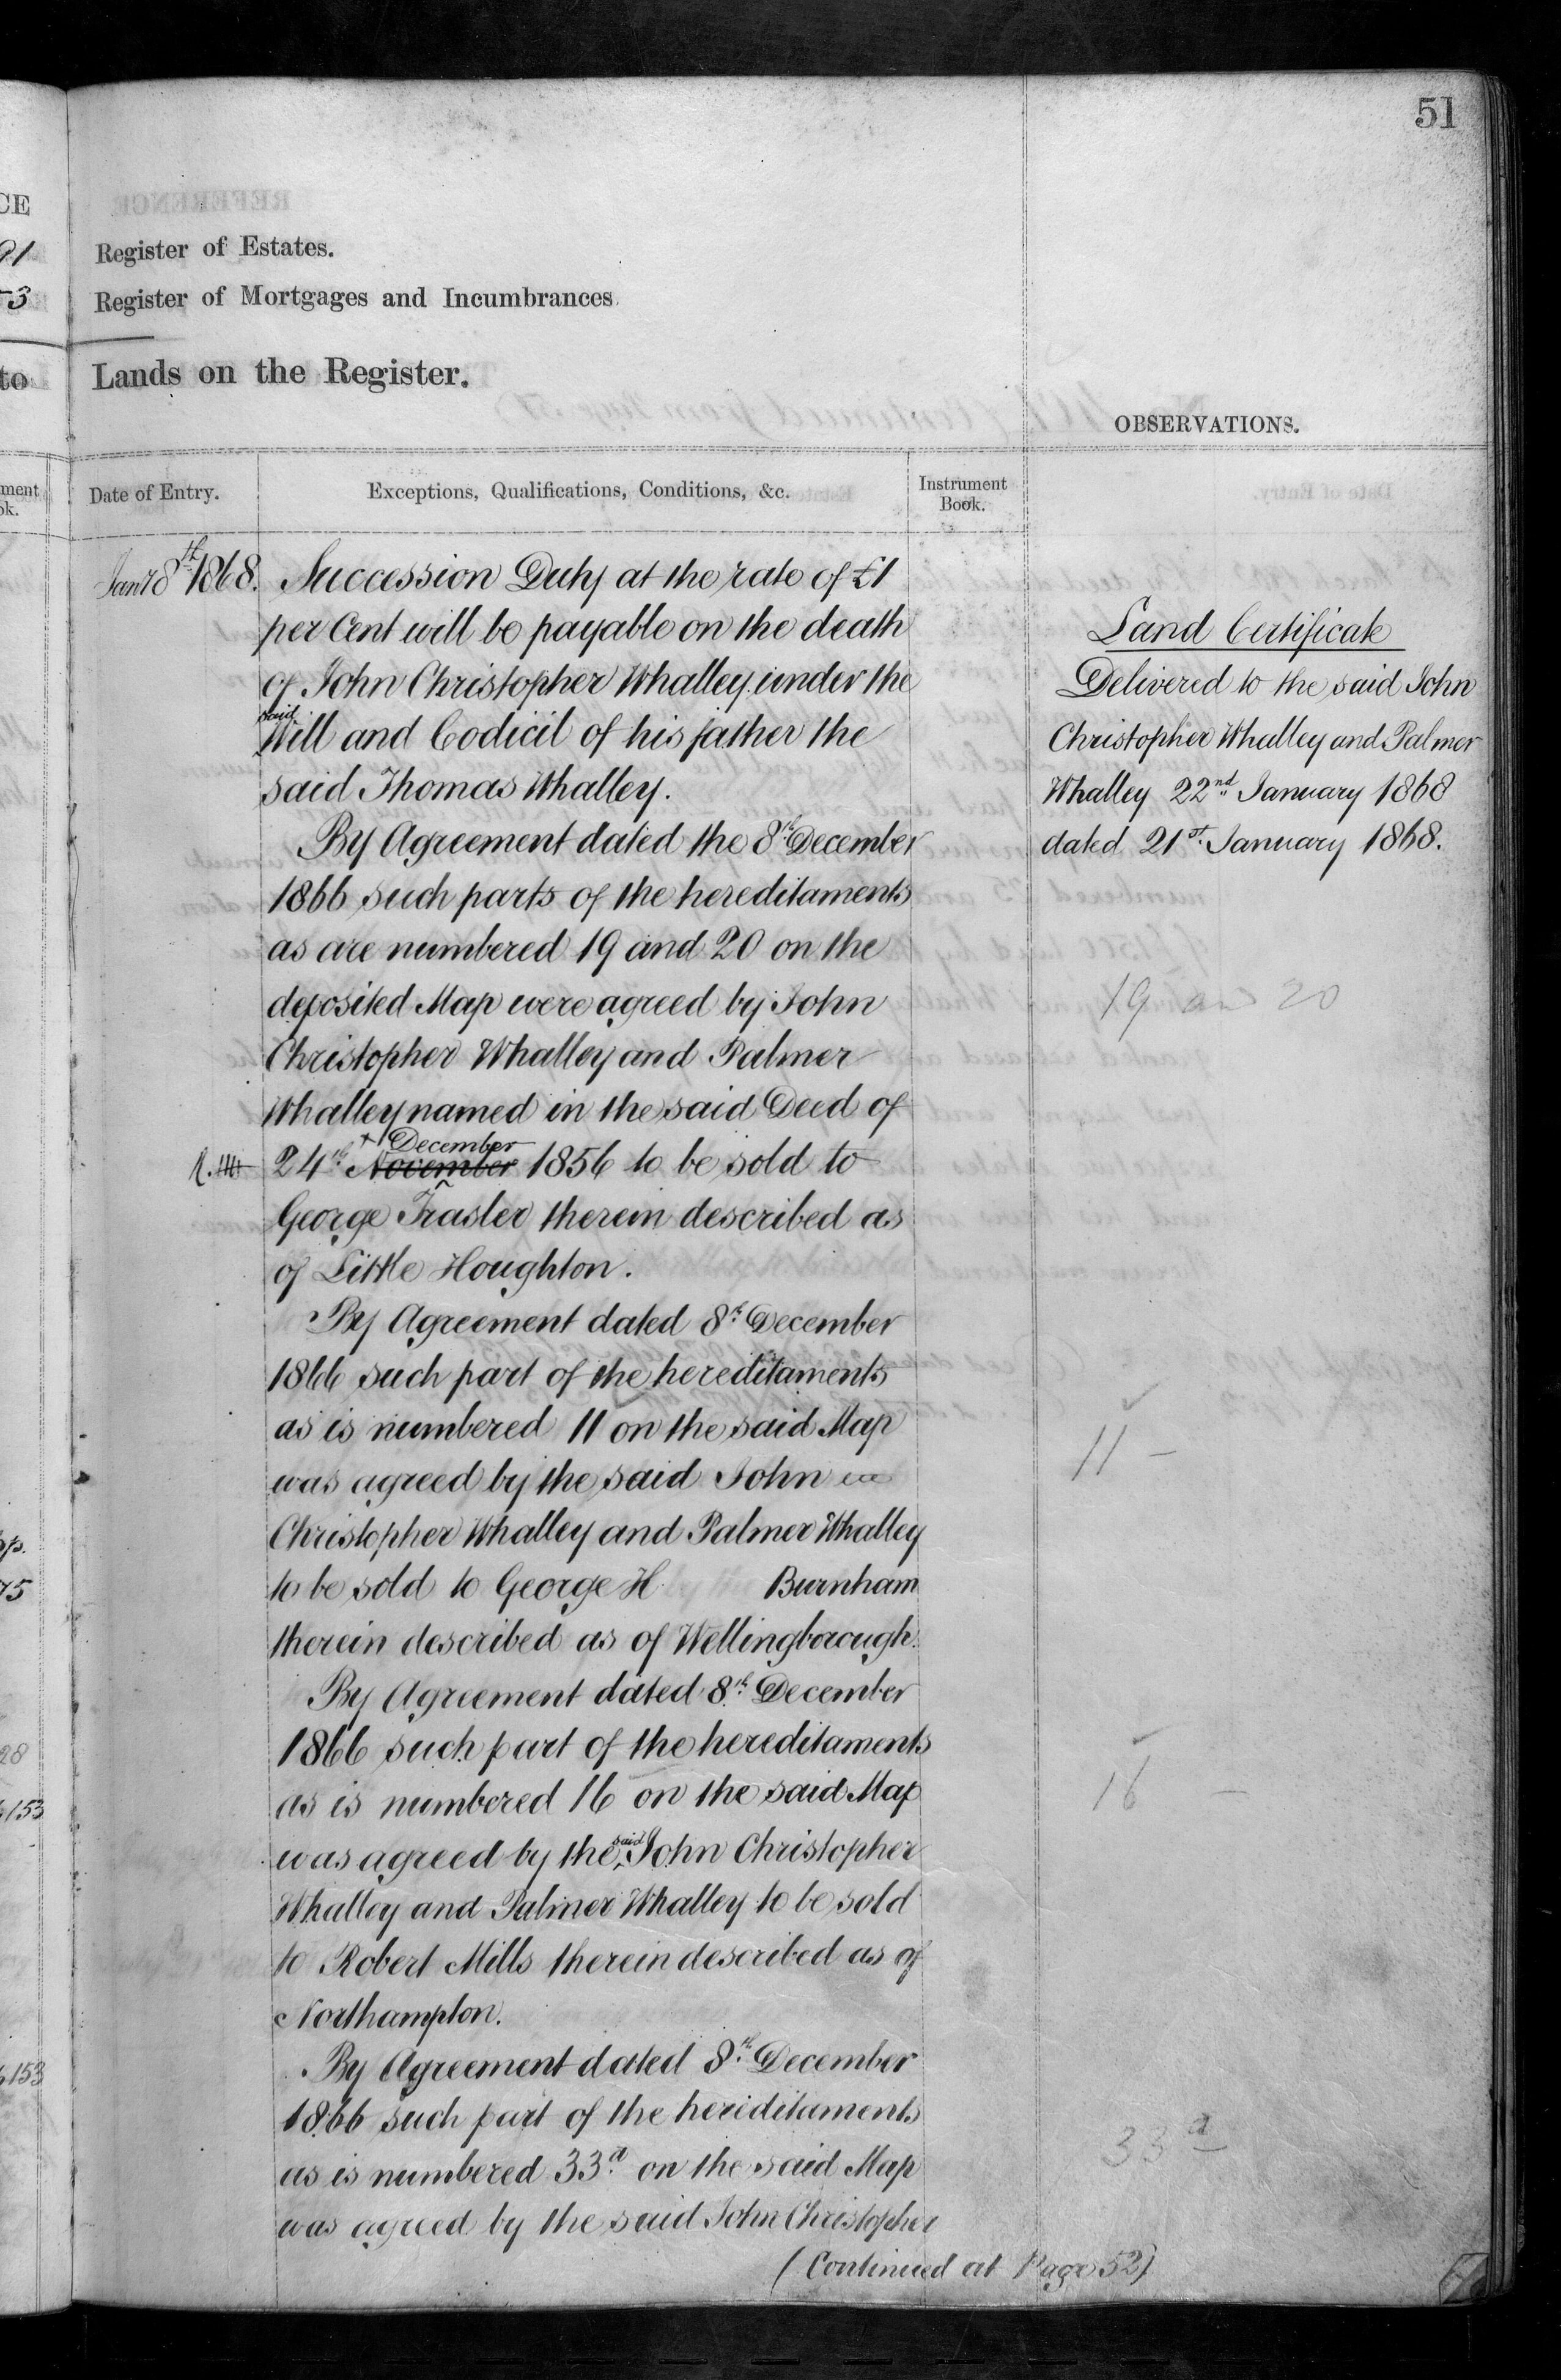 51
CE
91
-3
to
ment
ok.
Register of Estates.
Register of Mortgages and Incumbrances.
Lands on the Register.
OBSERVATIONS.
Date of Entry.
Exceptions, Qualifications, Conditions, &c.
Instrument
Book.
Jany 8th 1868.
Succession Duty at the rate of £1
per Cent will be payable on the death
of John Christopher Whalley under the
said
Will and Codicil of his father the
said Thomas Whalley.
By Agreement dated the 8th December
1866 such parts of the hereditaments
as are numbered 19 and 20 on the
deposited Map were agreed by John
Christopher Whalley and Palmer
Whalley named in the said Deed of
December
24th November 1856 to be sold to
George Frasler therein described as
of Little Houghton.
By Agreement dated 8th December
1866 such part of the hereditaments
as is numbered 11 on the said Map
was agreed by the said John
Christopher Whalley and Palmer Whalley
to be sold to George H Burnham
therein described as of Wellingborough.
By Agreement dated 8th December
1866 such part of the hereditaments
as is numbered 16 on the said Map
was agreed by the said John Christopher
Whalley and Palmer Whalley to be sold
to Robert Mills therein described as of
Northampton.
By Agreement dated 8th December
1866 such part of the hereditaments
as is numbered 33a on the said Map
was agreed by the said John Christopher
(Continued at Page 52)
Land Certificate
Delivered to the said John
Christopher Whalley and Palmer
Whalley 22nd January 1868
dated 21st January 1868.
19 and 20
11 -
16 -
33a
75
28
153
153